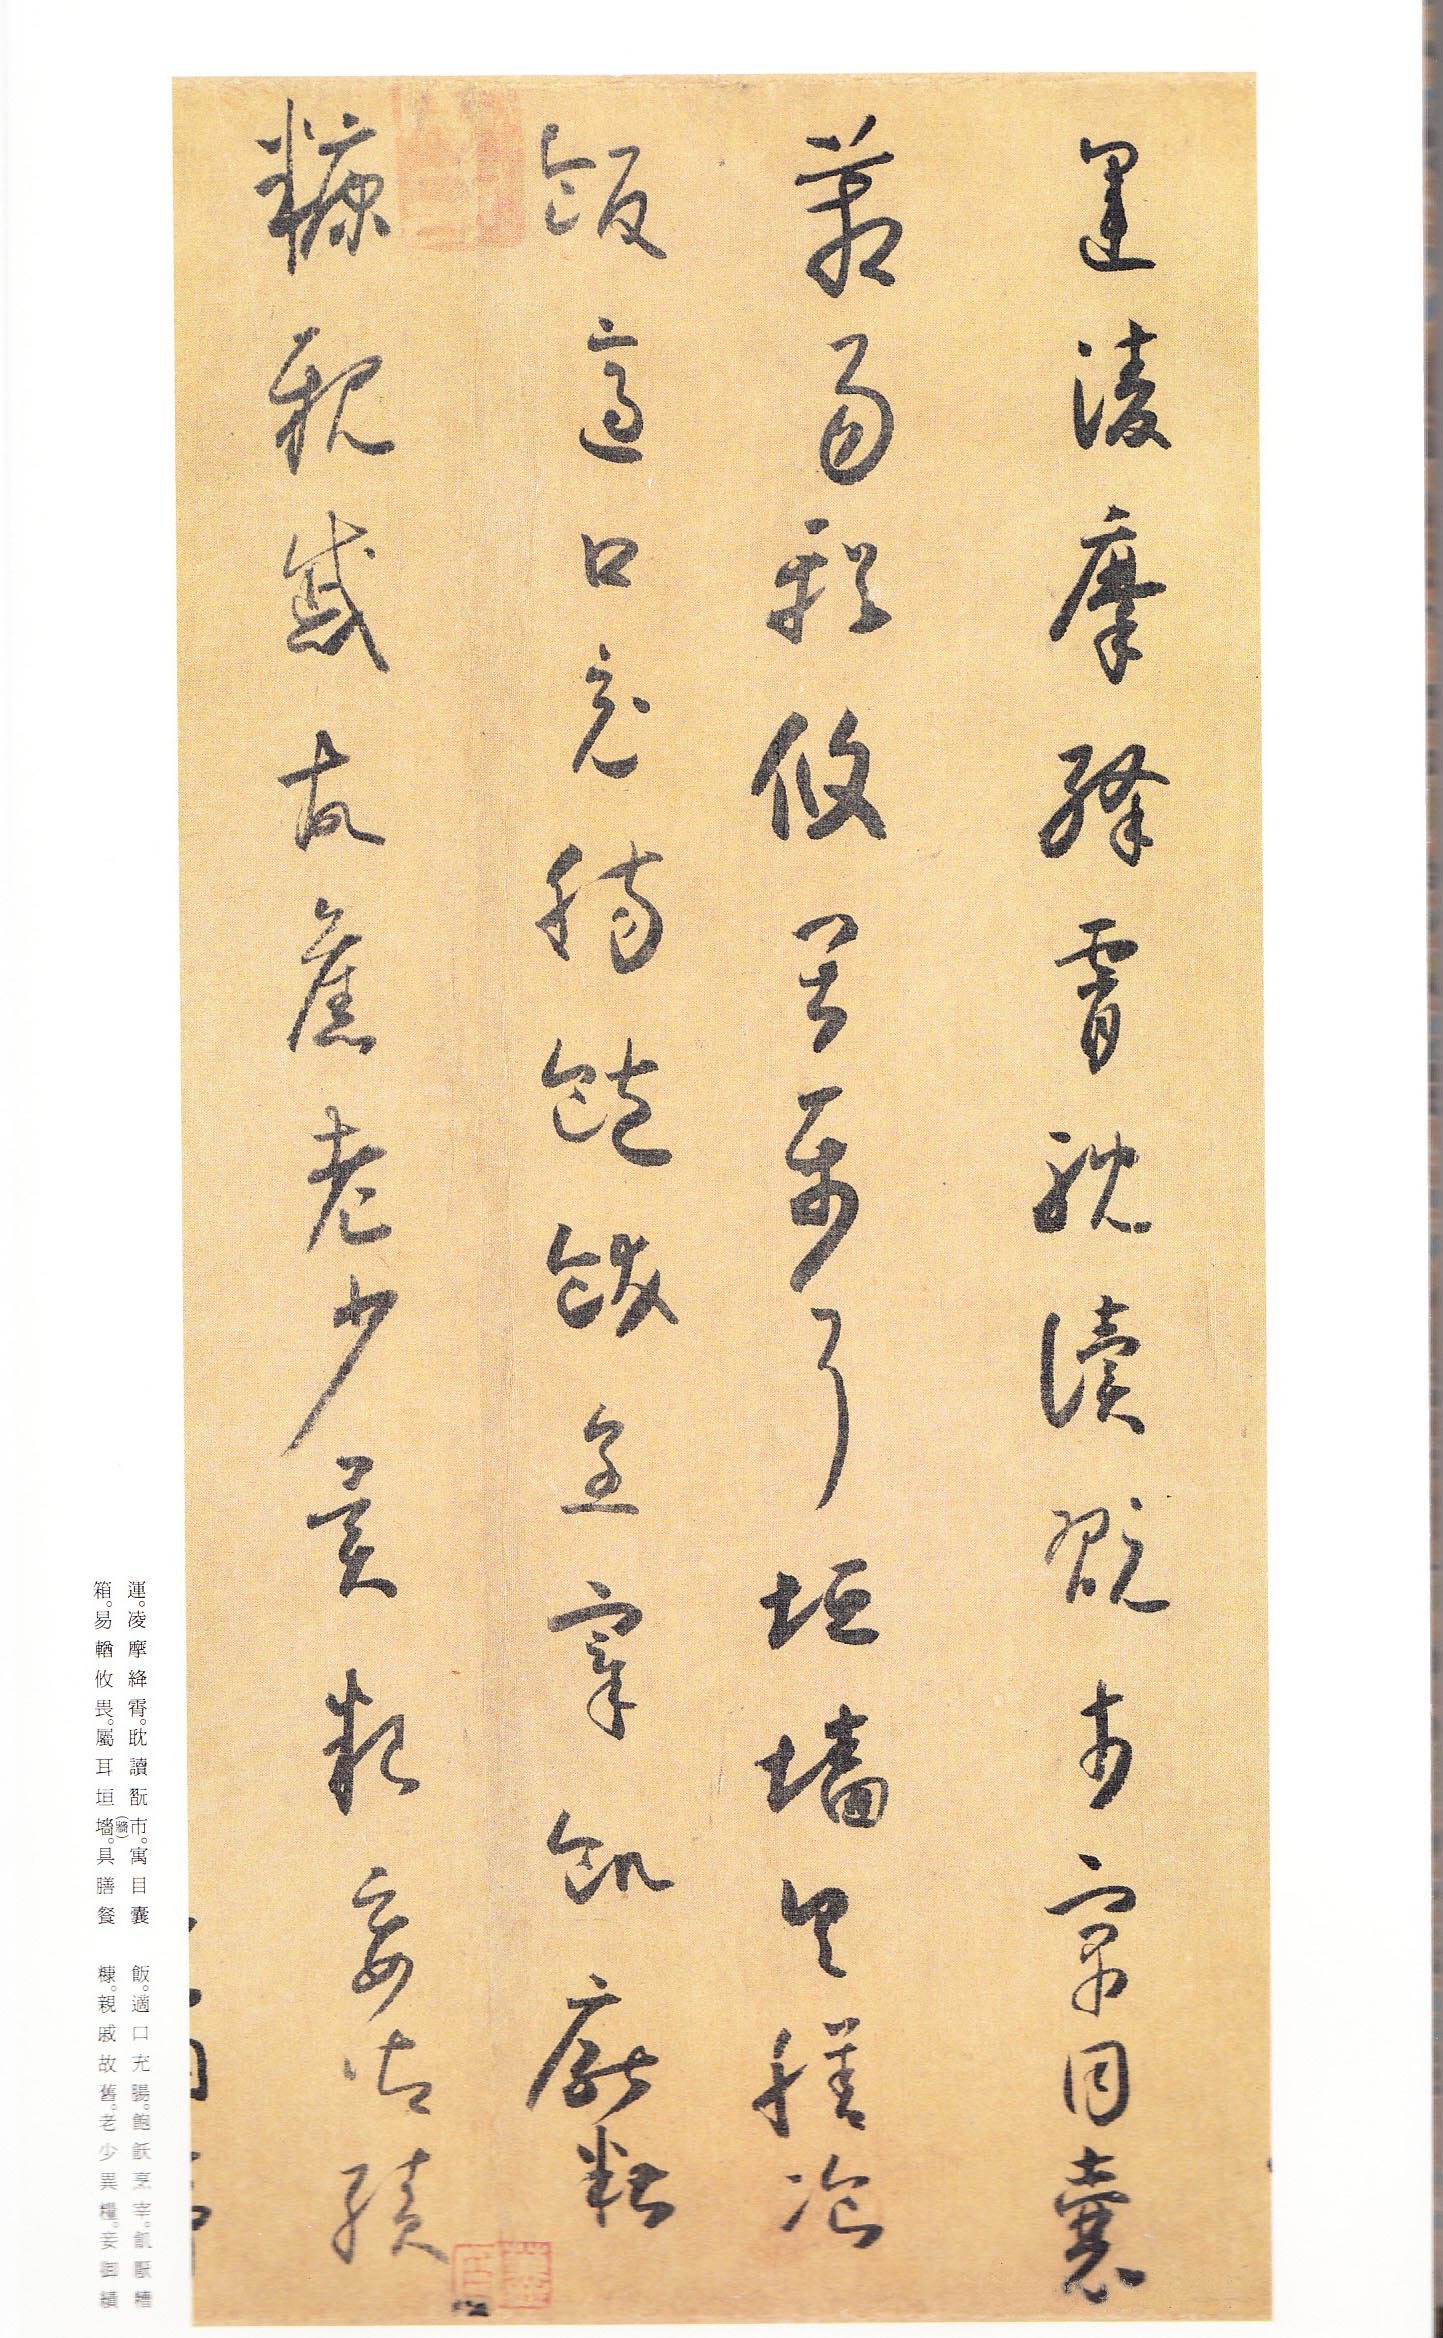 運凌摩絳霄耽讀翫市寓目囊
箱易輶攸畏屬耳垣墻具膳飡
飯適口充腸飽飫烹宰飢厭糟
糠親戚故舊老少異粮妾御績
運。凌摩絳霄。耽讀翫市。寓目囊
箱。易輶攸畏。屬耳垣墻(牆)。具膳餐
飯。適口充腸。飽飫烹宰。飢厭糟
糠。親戚故舊。老少異糧。妾御績